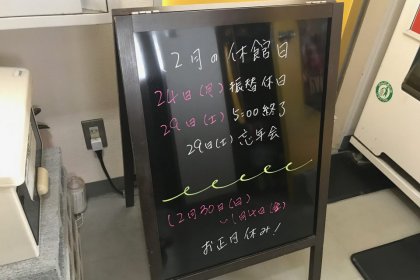 12月の休館日
24日(月)振替休日
29日(土)5:00終了
29日(土)忘年会
12月30日(日)
~1月4日(金)
お正月休み!